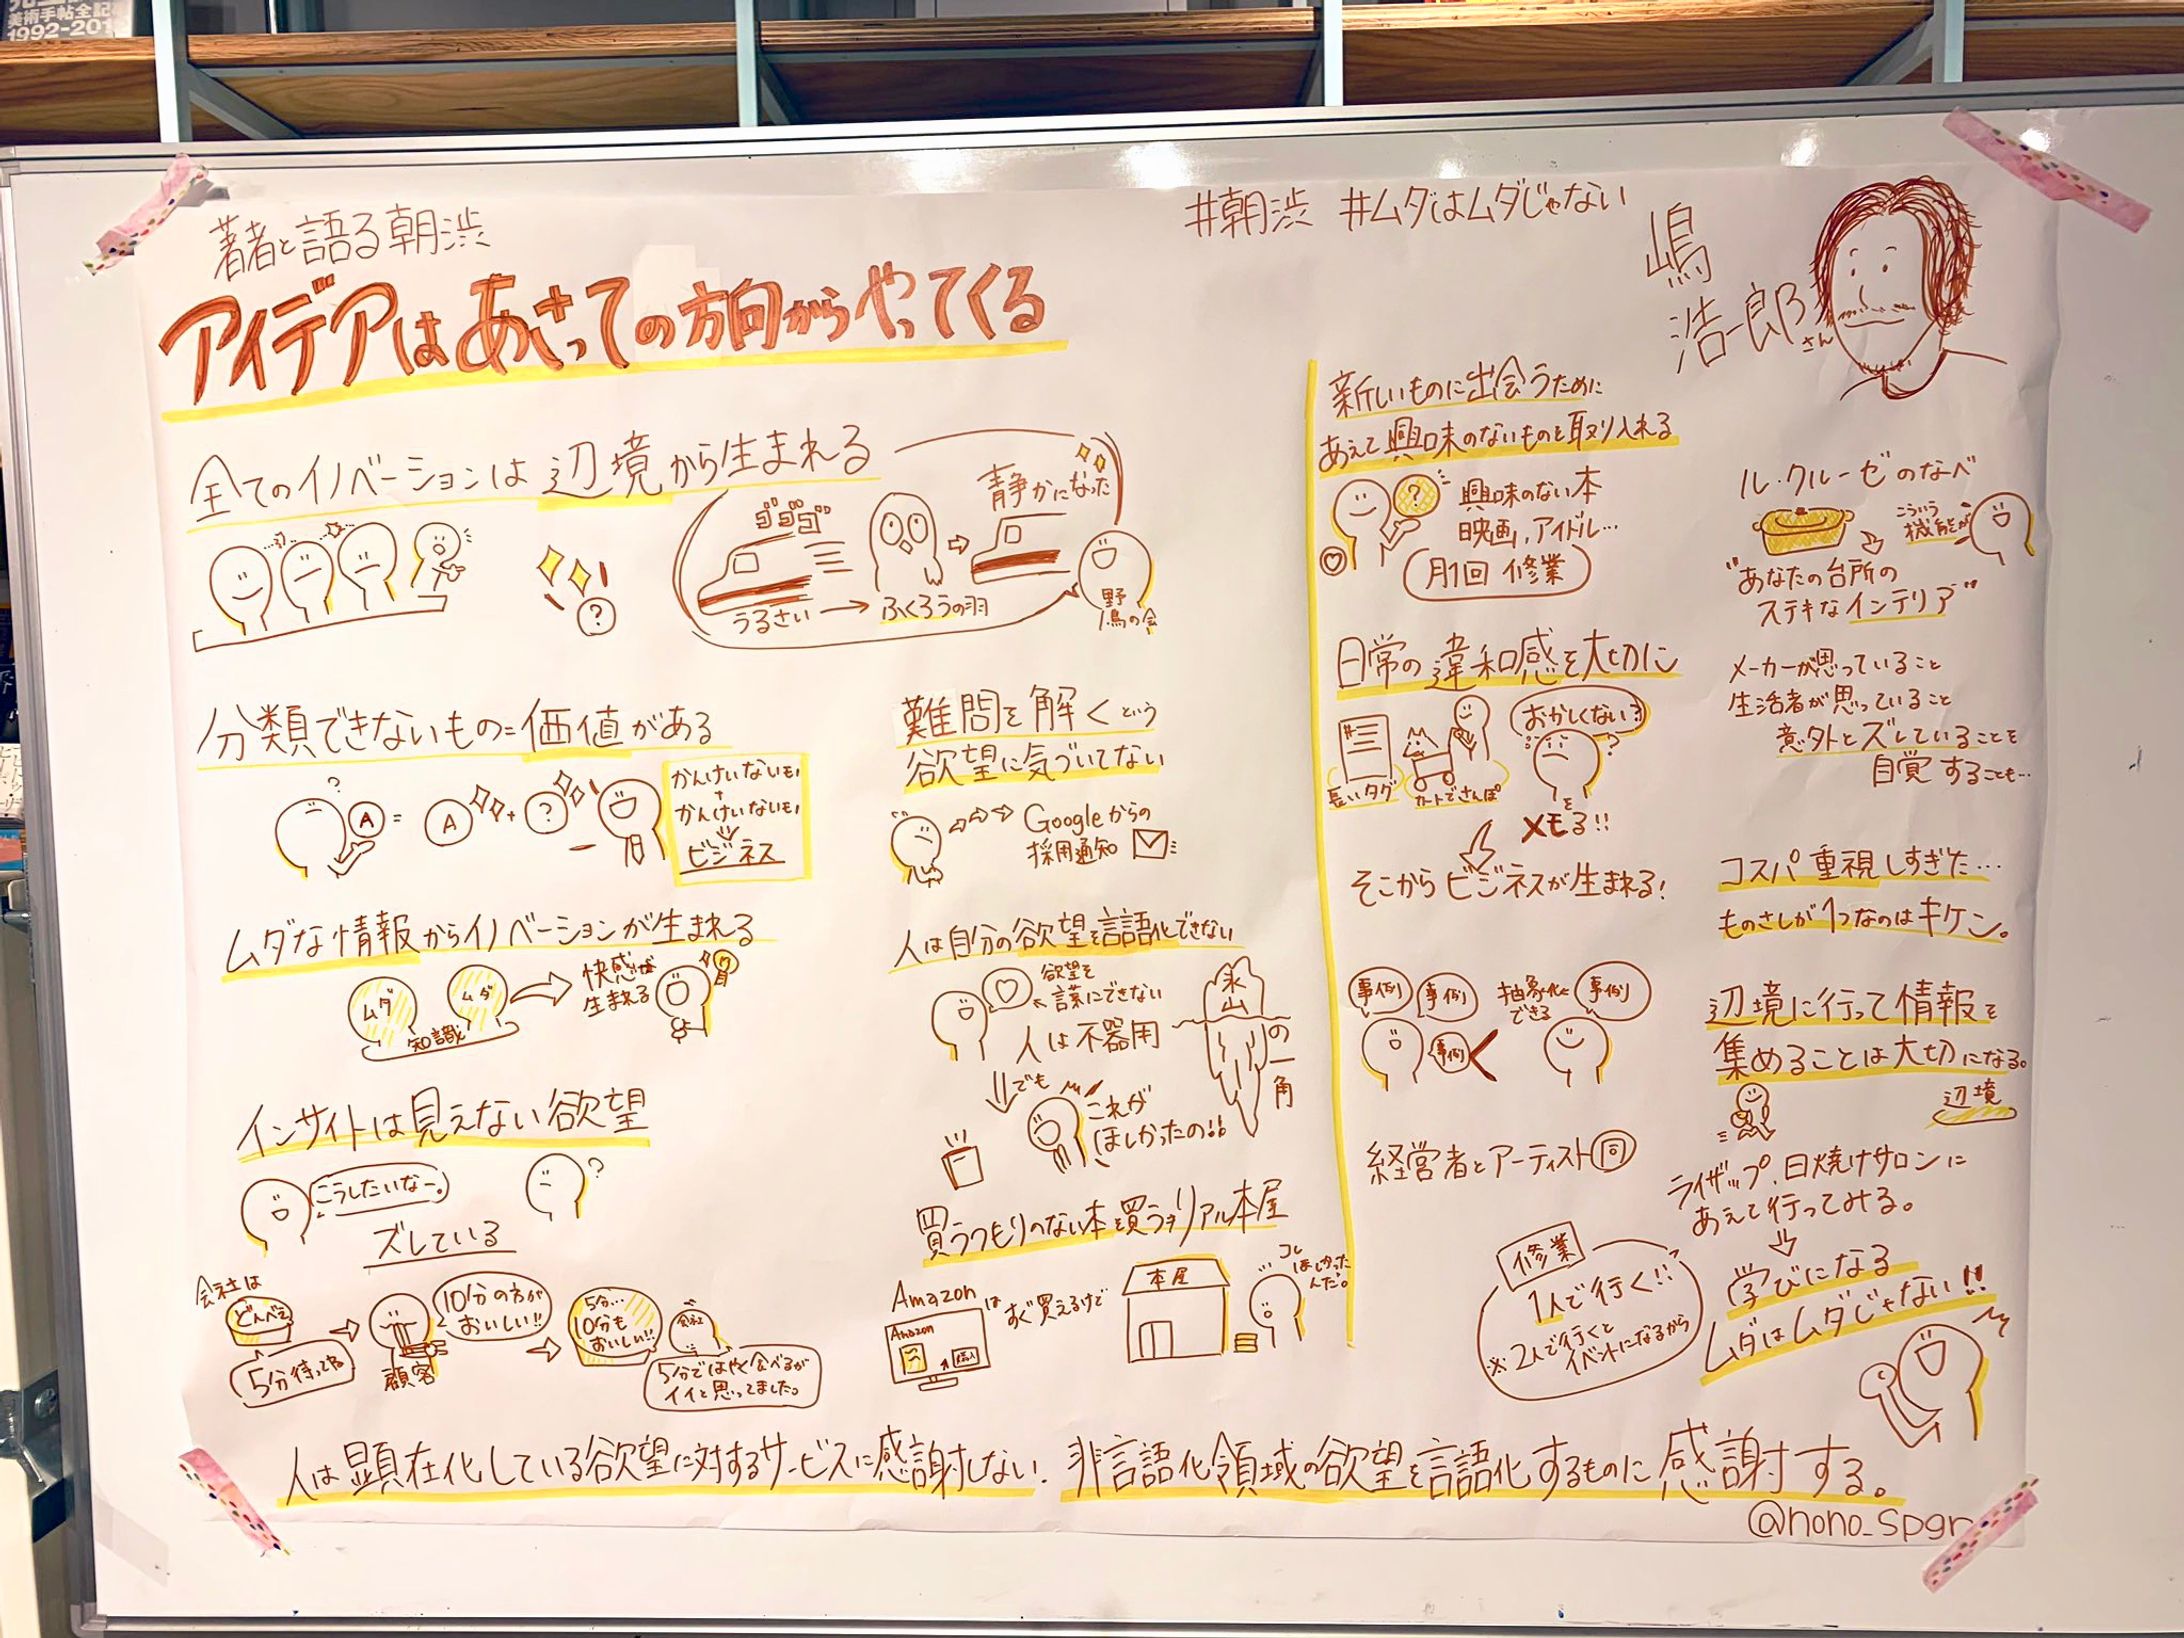 美術手帖全記
1992-201
著者と語る朝渋
#朝渋 #ムダはムダじゃない
嶋
浩一郎さん
アイデアはあさっての方向からやってくる
全てのイノベーションは辺境から生まれる
ゴゴゴ
うるさい
ふくろうの羽
静かになった
野鳥の会
分類できないもの=価値がある
?
A
=
A
+
?
かんけいないもの
+
かんけいないもの
ビジネス
ムダな情報からイノベーションが生まれる
ムダ
ムダ
知識
快感が
生まれる
インサイトは見えない欲望
こうしたいなー。
?
ズレている
会社は
どんべえ
5分待ってね
顧客
10分の方が
おいしい!!
5分…
10分も
おいしい!!
会社
5分ではやく食べるが
イイと思ってました。
難問を解くという
欲望に気づいてない
Googleからの
採用通知
人は自分の欲望を言語化できない
欲望を
言葉にできない
人は不器用
氷山
の一角
でも
これが
ほしかったの!!
買うつもりのない本を買うリアル本屋
Amazonは
すぐ買えるけど
Amazon
購入
本屋
コレ
ほしかった
んだ。
新しいものに出会うために
あえて興味のないものを取り入れる
?
興味のない本
映画,アイドル…
月1回 修業
日常の違和感を大切に
長いタグ
カートでさんぽ
おかしくない?
?
を
メモる!!
そこからビジネスが生まれる!
事例
事例
事例
<
抽象化
できる
事例
経営者とアーティスト同
修業
1人で行く!!
※2人で行くと
イベントになるから
ル・クルーゼのなべ
こういう
機能が
"あなたの台所の
ステキなインテリア"
メーカーが思っていること
生活者が思っていること
意外とズレていることを
自覚することも…
コスパ重視しすぎた…
ものさしが1つなのはキケン。
辺境に行って情報を
集めることは大切になる。
辺境
ライザップ,日焼けサロンに
あえて行ってみる。
学びになる
ムダはムダじゃない!!
人は顕在化している欲望に対するサービスに感謝しない. 非言語化領域の欲望を言語化するものに感謝する。
@nono_spgr